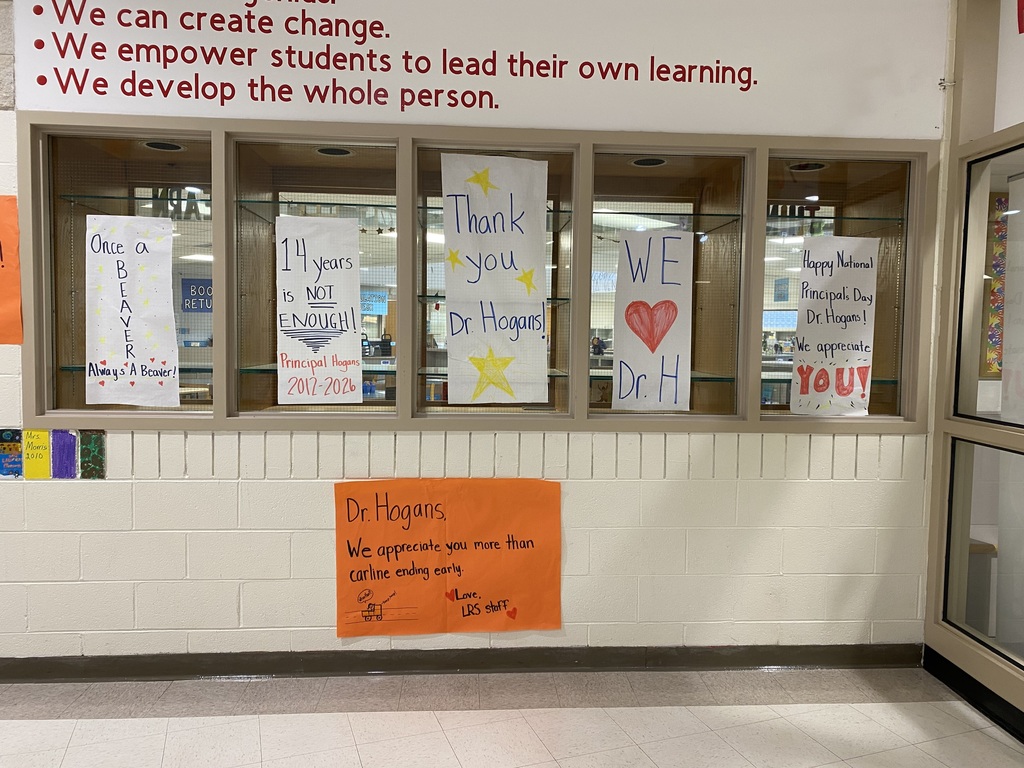 • We can create change.
• We empower students to lead their own learning.
• We develop the whole person.
Once a
BEAVER
Always A Beaver!
14 years
is NOT
ENOUGH!
Principal Hogans
2012-2026
Thank
you
Dr. Hogans!
WE
Dr. H
Happy National
Principal's Day
Dr. Hogans!
We appreciate
YOU!
BOO
RETU
Mrs.
Morris
2010
Dr. Hogans,
We appreciate you more than
carline ending early.
Love,
LRS staff